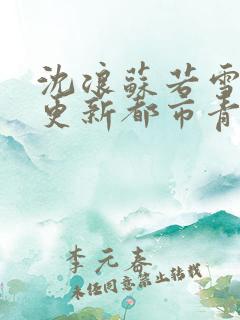 沈浪蘇若雪
更新都市青
李元春
未经同意禁止转载